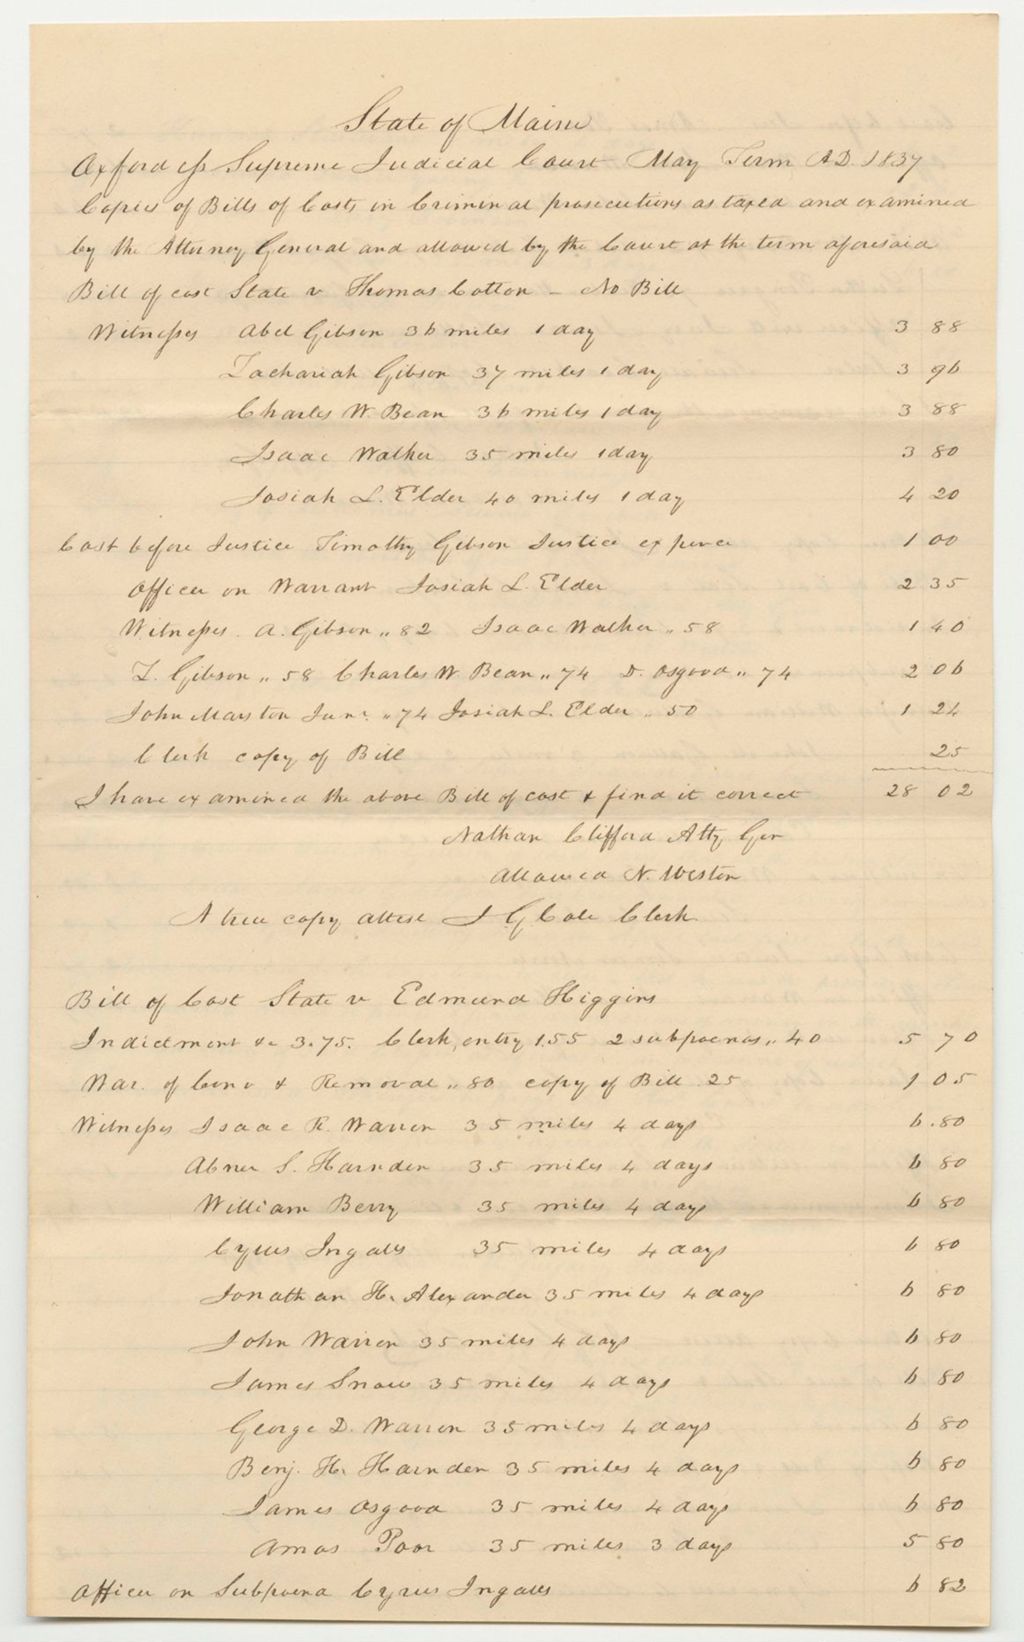 State of Maine
Oxford ss Supreme Judicial Court May Term A.D. 1837
Copies of Bills of Costs in Criminal prosecutions as taxed and examined
by the Attorney General and allowed by the Court at the term aforesaid
Bill of cost State v Thomas Cotton - No Bill
Witnesses Abel Gibson 36 miles 1 day 3 88
Zachariah Gibson 37 miles 1 day 3 96
Charles W. Bean 36 miles 1 day 3 88
Isaac Walker 35 miles 1 day 3 80
Josiah L. Elder 40 miles 1 day 4 20
Cost before Justice Timothy Gibson Justice 1 00
Officer on Warrant Josiah L. Elder 2 35
Witnesses. A. Gibson ,, 82 Isaac Walker ,, 58 1 40
Z. Gibson ,, 58 Charles W. Bean ,, 74 D. Osgood ,, 74 2 06
John Marston Junr. ,, 74 Josiah L. Elder ,, 50 1 24
Clerk copy of Bill 25
I have examined the above Bill of cost & find it correct 28 02
Nathan Clifford Atty Gen
Allowed N. Weston
A true copy attest J G Cole Clerk
Bill of Cost State v Edmund Higgins
Indictment &c 3.75. Clerk, entry 1.55 2 subpoenas ,, 40 5 70
War. of Conv & Removal ,, 80 copy of Bill 25 1 05
Witnesses Isaac R. Warren 35 miles 4 days 6.80
Abner S. Harnden 35 miles 4 days 6 80
William Berry 35 miles 4 days 6 80
Cyrus Ingalls 35 miles 4 days 6 80
Jonathan H. Alexander 35 miles 4 days 6 80
John Warren 35 miles 4 days 6 80
James Snow 35 miles 4 days 6 80
George D. Warren 35 miles 4 days 6 80
Benj. H. Harnden 35 miles 4 days 6 80
James Osgood 35 miles 4 days 6 80
Amos Poor 35 miles 3 days 5 80
Officer on Subpoena Cyrus Ingalls 6 82